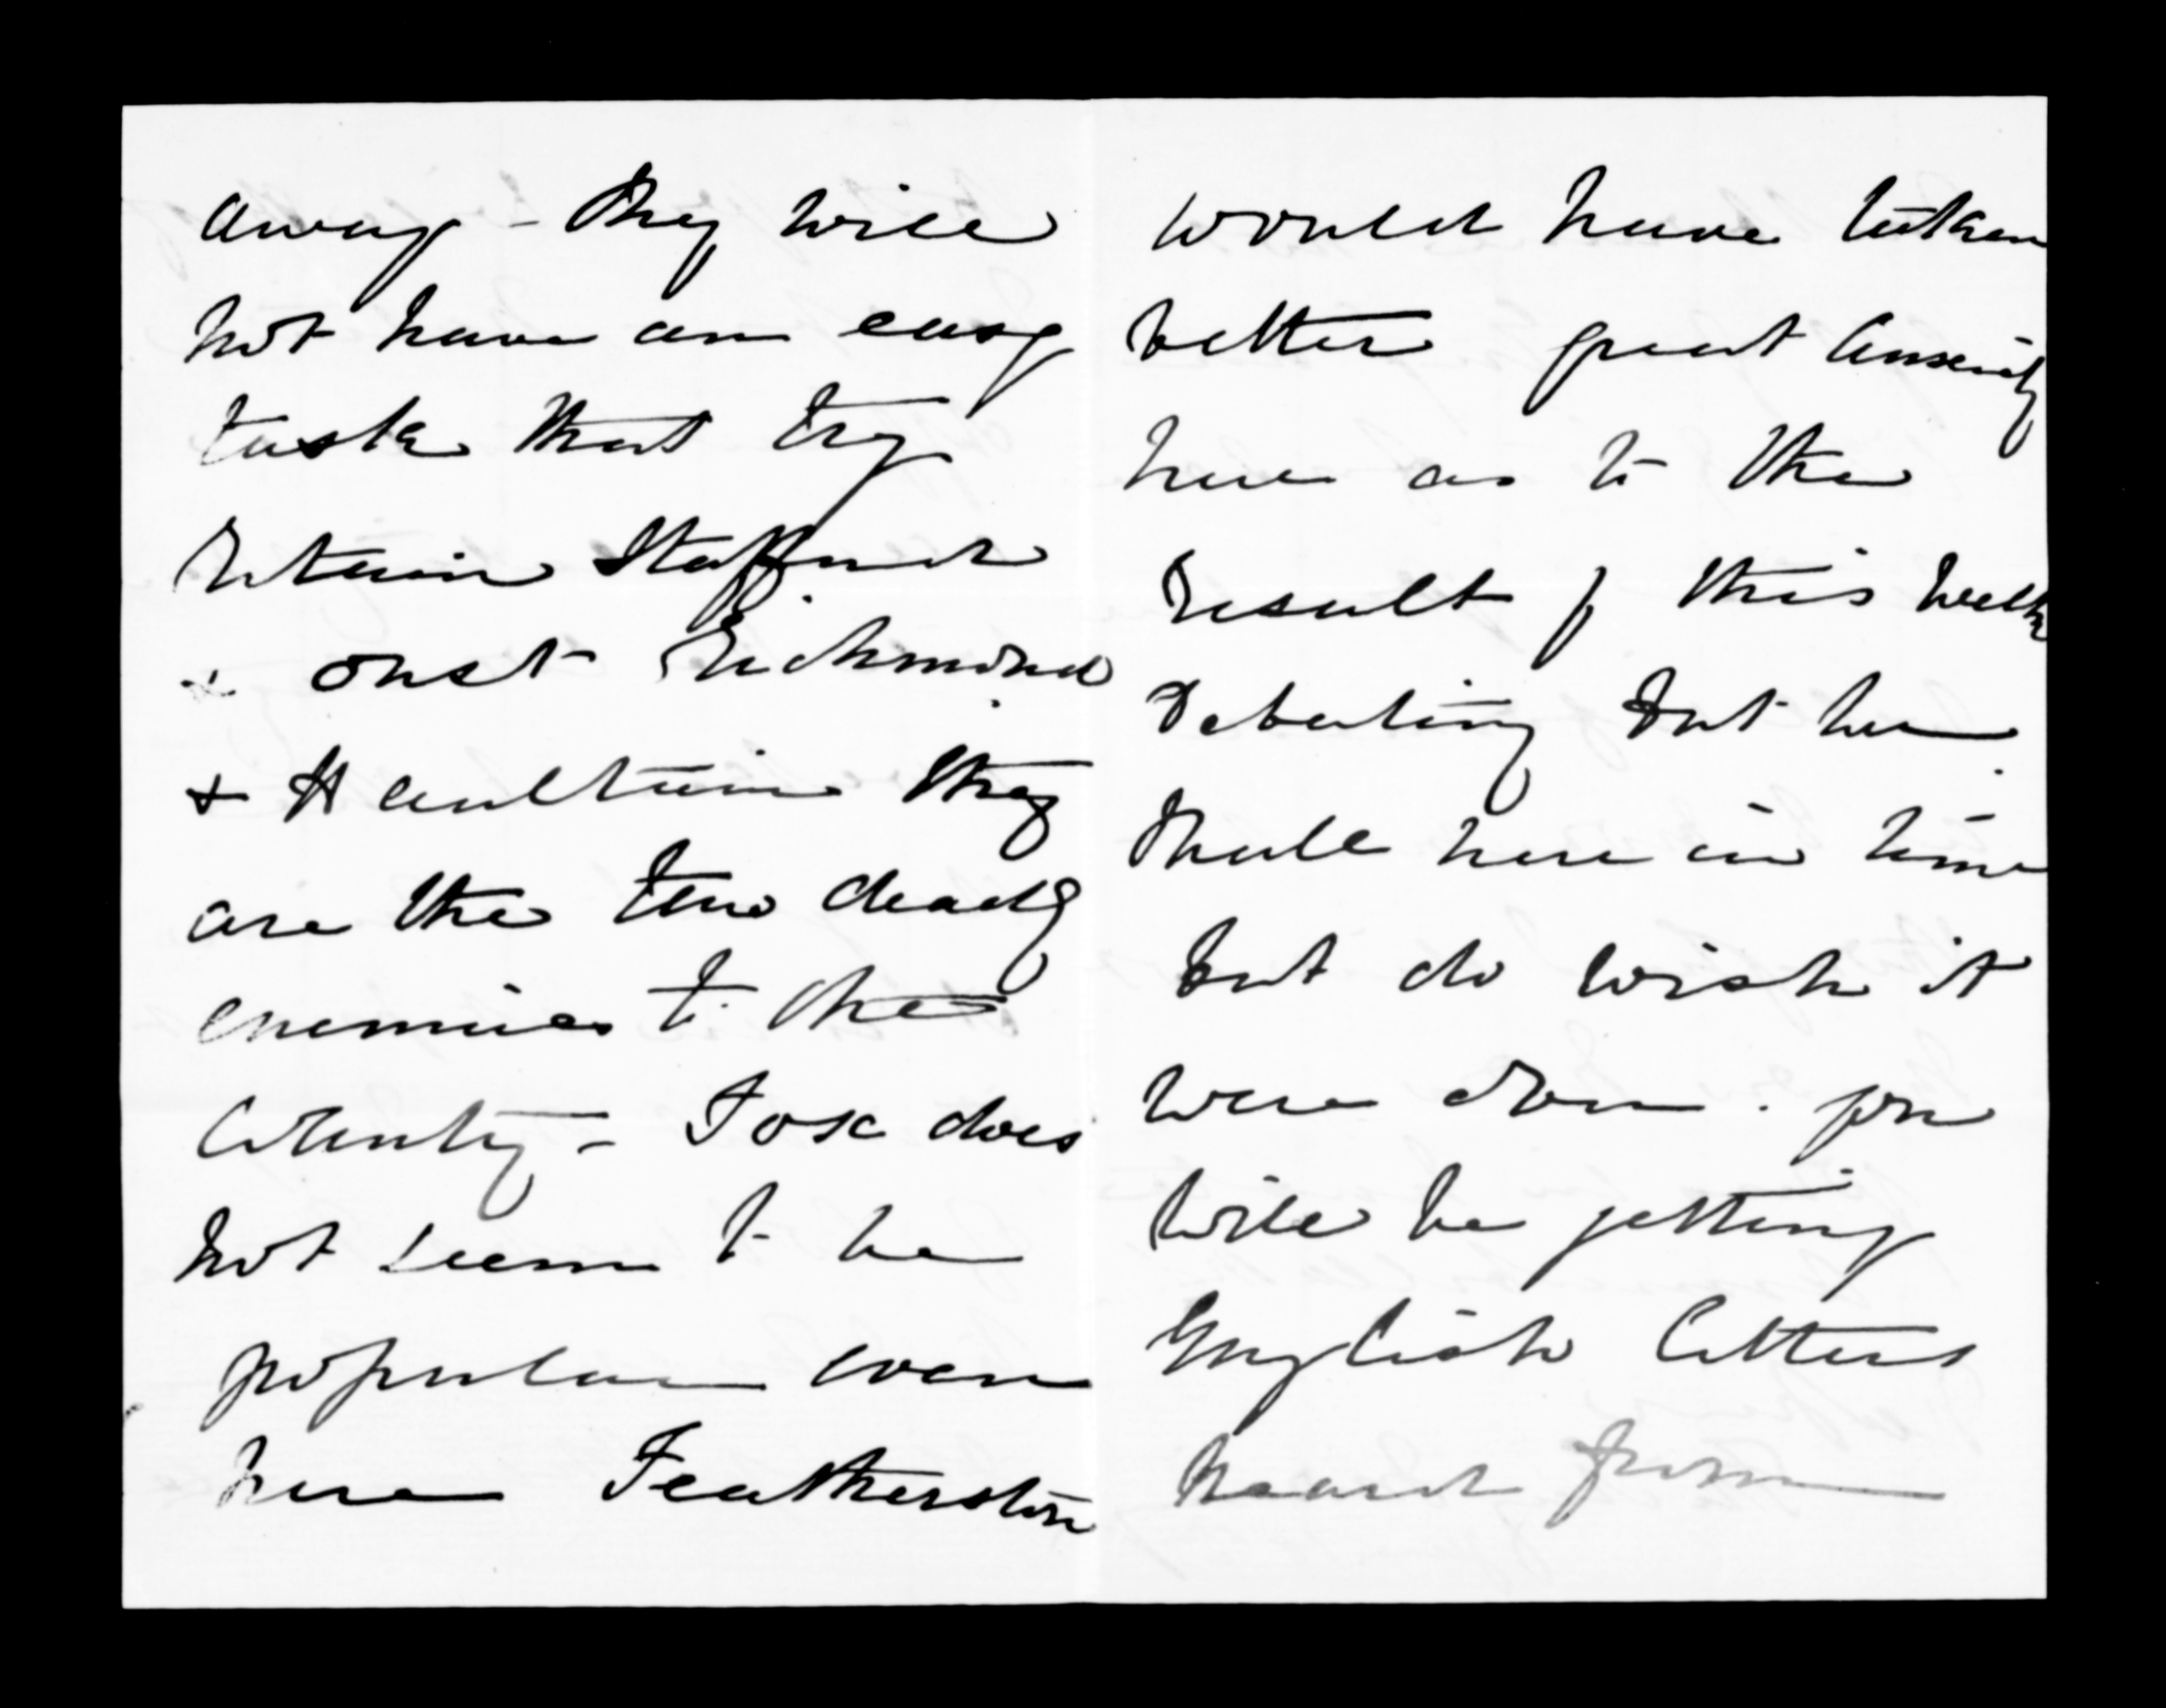 away - they will
not have an easy
task that try
retain Stafford
& oust Richmond
& Haultain they
are the two deadly
enemies to the
County - Fox does
not seem to be
popular even
here Featherston
would have taken
better great anxiety
here as to the
result of this week
debating but he
here in time
but do wish it
were done. you
will be getting
English letters
heard from